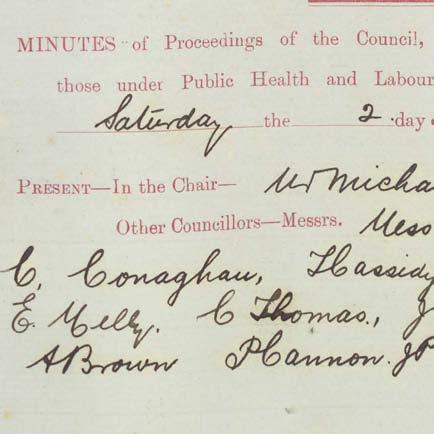 MINUTES of Proceedings of the Council,
those under Public Health and Labour
Saturday the 2 day
PRESENT—In the Chair— Mr Micha
Other Councillors—Messrs. Mess
C. Conaghan, H Cassidy
E. Melly. C Thomas., J
A Brown P Cannon. JP